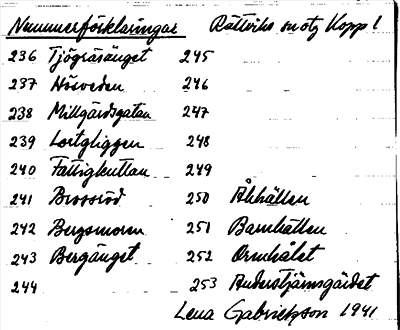 Nummerförklaringar Rättviks sn otg Kopp 1
236 Tjögräsänget 245
237 Hösveden 246
238 Millgårdsgatan 247
239 Lortgliggen 248
240 Fattigkuttan 249
241 Brossröd 250 Åkhällen
242 Bergsmoren 251 Barnhällen
243 Bergänget 252 Ormhålet
244 253 Anderstjärnsgärdet
Lena Gabrielsson 1941